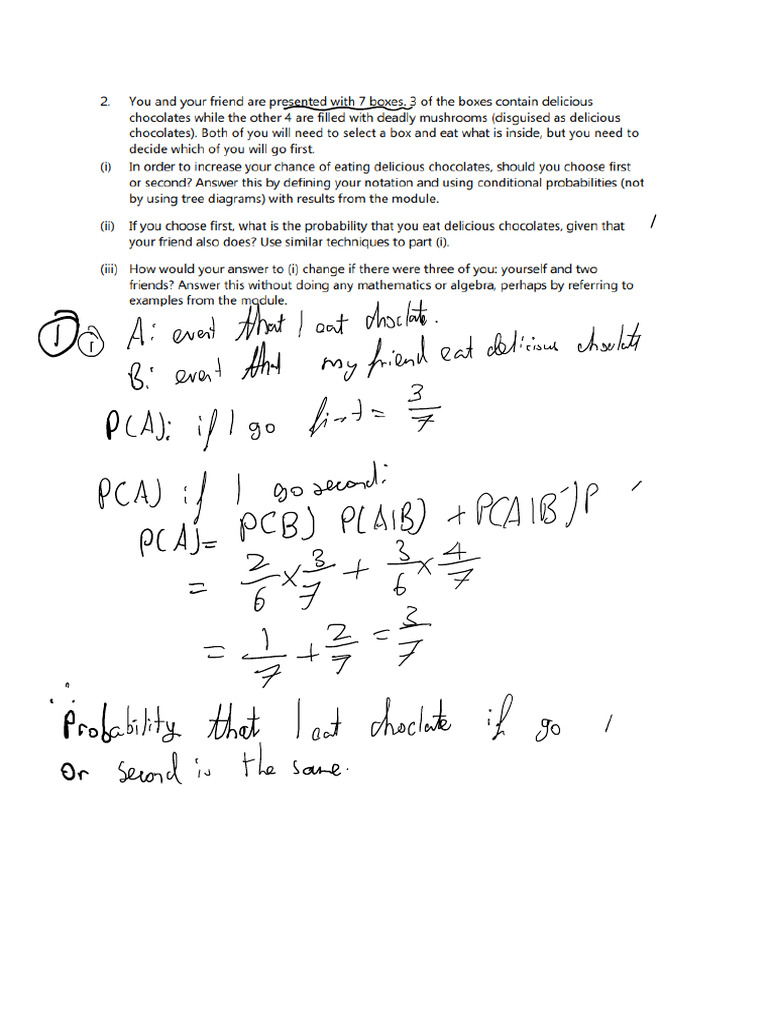 2. You and your friend are presented with 7 boxes. 3 of the boxes contain delicious
chocolates while the other 4 are filled with deadly mushrooms (disguised as delicious
chocolates). Both of you will need to select a box and eat what is inside, but you need to
decide which of you will go first.
(i) In order to increase your chance of eating delicious chocolates, should you choose first
or second? Answer this by defining your notation and using conditional probabilities (not
by using tree diagrams) with results from the module.
(ii) If you choose first, what is the probability that you eat delicious chocolates, given that
your friend also does? Use similar techniques to part (i).
(iii) How would your answer to (i) change if there were three of you: yourself and two
friends? Answer this without doing any mathematics or algebra, perhaps by referring to
examples from the module.
1 i A: event that I eat choclate.
B: event that my friend eat delicious choclate
P(A): if I go first = 3/7
P(A) if I go second:
P(A)= P(B) P(A|B) + P(A|B')P
= 2/6 × 3/7 + 3/6 × 4/7
= 1/7 + 2/7 = 3/7
∴ Probability that I eat choclate if go 1
Or second is the same.